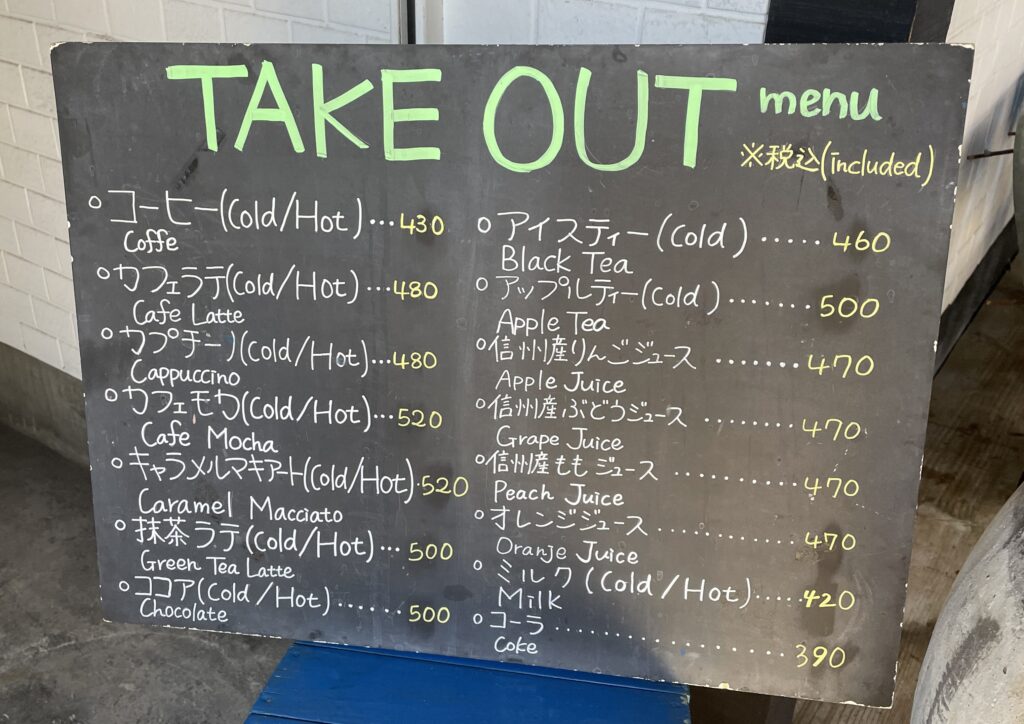 TAKE OUT menu
※税込(included)
○コーヒー(Cold/Hot)…430
Coffe
○カフェラテ(Cold/Hot)…480
Cafe Latte
○カプチーノ(Cold/Hot)…480
Cappuccino
○カフェモカ(Cold/Hot)…520
Cafe Mocha
○キャラメルマキアート(Cold/Hot)·520
Caramel Macciato
○抹茶ラテ(Cold/Hot)…500
Green Tea Latte
○ココア(Cold/Hot)……500
Chocolate
○アイスティー(Cold)·····460
Black Tea
○アップルティー(Cold)·······500
Apple Tea
○信州産りんごジュース·······470
Apple Juice
○信州産ぶどうジュース········470
Grape Juice
○信州産ももジュース··········470
Peach Juice
○オレンジジュース············470
Oranje Juice
○ミルク(Cold/Hot)·····420
Milk
○コーラ··················390
Coke